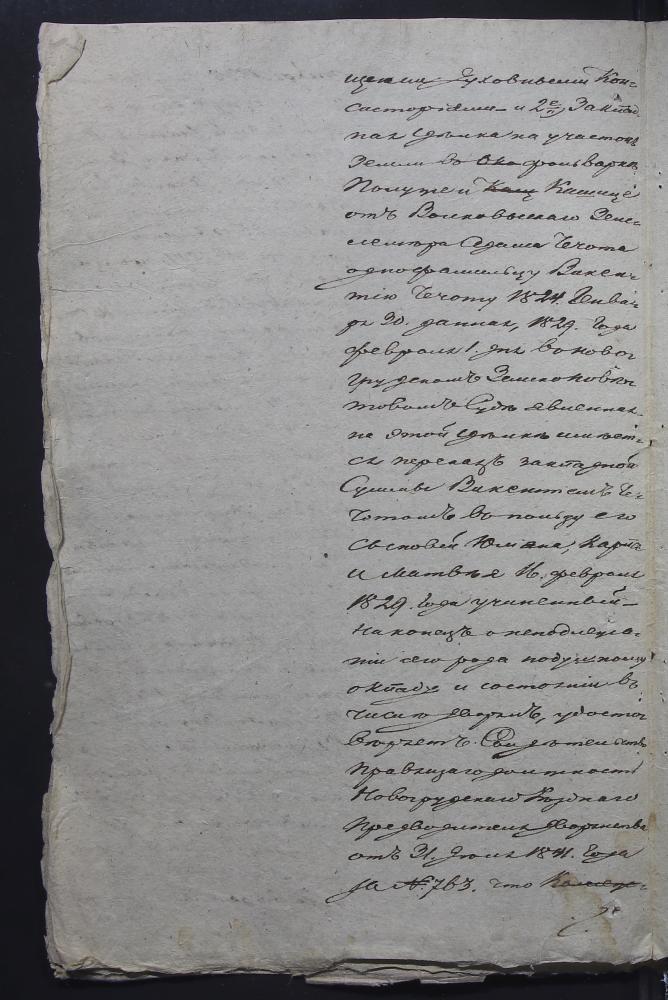 щеками Духовными Кон-
систоріями и 2е/, Заклад
ная сдѣлка на участокъ
Земли во фольваркѣ
Полуже и Кашице
отъ Волковыскаго Зем-
лемѣра Адама Чечота
однофамильцу Викен-
тію Чечоту 1824. Генва-
ря 30. данная, 1829. Года
февраля 1. дня въ ново-
грудскомъ Земском Повѣ-
товомъ Судѣ явленная.
на этой сдѣлкѣ имѣет-
ся переказъ закладной
Суммы Викентіемъ Че-
чотомъ въ пользу его
сыновей Юліана, Карла
и Матвѣя 16. февраля
1829. Года учиненный
Наконецъ о неподлежа-
ніи сего рода подушному
окладу и состояніи въ
числѣ дворянъ, удосто-
вѣряетъ Свидѣтельство
правящаго должность
Новогрудскаго Уѣзднаго
Предводителя Дворянства
отъ 31. Іюля 1841. Года
за №. 763. что